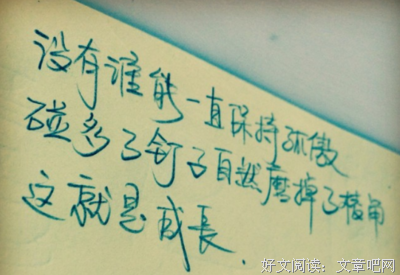 没有谁能一直保持孤傲
碰多了钉子自然磨掉了棱角
这就是成長.
好文阅读：文章吧网